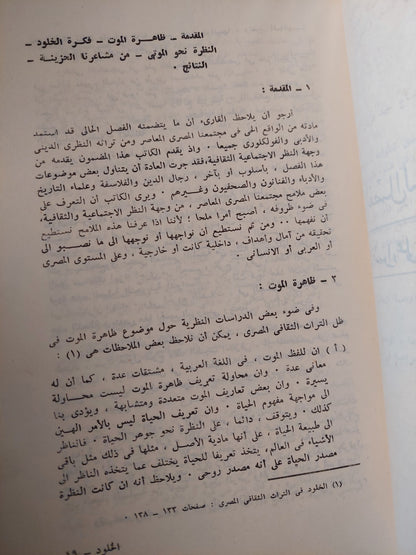 المقدمة ــ ظاهرة الموت ــ فكرة الخلود ــ
النظرة نحو الموتى ــ من مشاعرنا الحزينة ــ
النتائج .
١ ــ المقدمة :
أرجو أن يلاحظ القارىء أن ما يتضمنه الفصل الحالى قد استمد
مادته من الواقع الحى فى مجتمعنا المصرى المعاصر ومن تراثه النظرى الدينى
والأدبى والفولكلورى جميعا . واذ يقدم الكاتب هذا المضمون يقدمه من
وجهة النظر الاجتماعية الثقافية، فقد جرت العادة أن يتناول بعض موضوعات
هذا الفصل ، بأسلوب أو بآخر ، رجال الدين والفلاسفة وعلماء التاريخ
والأدباء والفنانون والصحفيون وغيرهم . ويرى الكاتب أن التعرف على
بعض ملامح مجتمعنا المصرى المعاصر ، من وجهة النظر الاجتماعية والثقافية،
فى ضوء ظروفه ، أصبح أمرا ملحا ؛ لأننا اذا عرفنا هذه الملامح نستطيع
أن نفهمها . . ومن ثم نستطيع أن نواجهها أو نوجهها الى ما نصبو الى
تحقيقه من آمال وأهداف ، داخلية كانت أو خارجية ، وعلى المستوى المصرى
أو العربى أو الانسانى .
٢ ــ ظاهرة الموت :
وفى ضوء بعض الدراسات النظرية حول موضوع ظاهرة الموت فى
ظل التراث الثقافى المصرى ، يمكن أن نلاحظ بعض الملاحظات هى (١) :
( أ ) ان للفظ الموت ، فى اللغة العربية ، مشتقات عدة ، كما أن له
معانى عدة . وان محاولة تعريف ظاهرة الموت ليست محاولة
يسيرة . وان بعض تعاريف الموت متعددة ومتشابهة ، ويؤدى بنا
الى مواجهة مفهوم الحياة . وان تعريف الحياة ليس بالأمر الهين
كذلك . ويتوقف ، دائما ، على النظرة نحو جوهر الحياة . فالناظر
الى طبيعة الحياة ، على أنها مادية الأصل ، مثلها فى ذلك مثل باقى
الأشياء فى العالم، يتخذ تعريفا للحياة يختلف عما يتخذه الناظر الى
مصدر الحياة على أنه مصدر روحى . ويلاحظ أنه ان كانت النظرة
(١) الخلود فى التراث الثقافى المصرى : صفحات ١٣٣ ــ ١٣٨ .
الخلود ــ ١٩